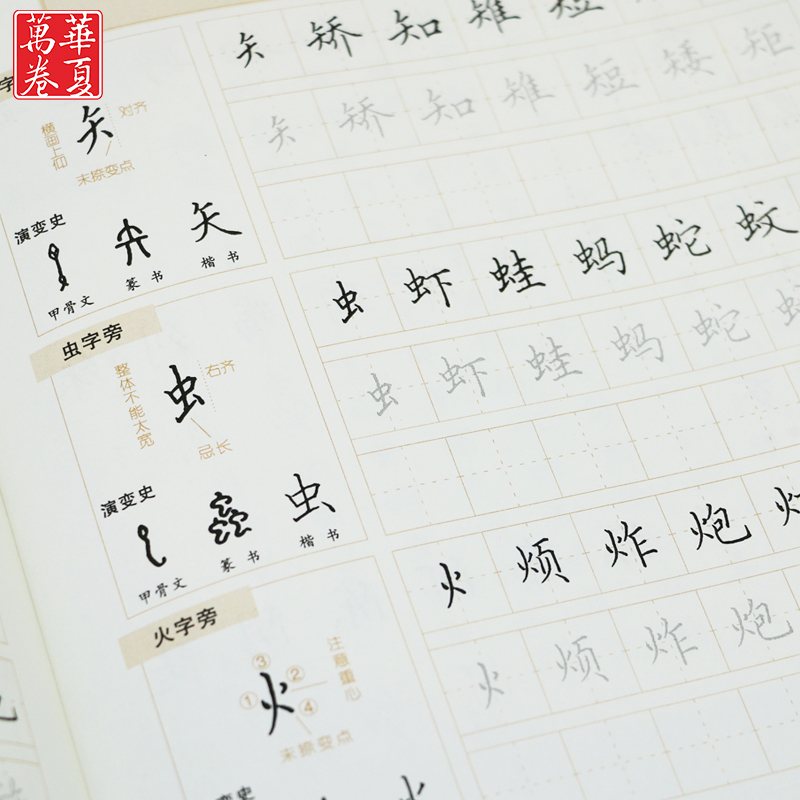 華夏
萬卷
矢 矫 知 雉 短
矢 矫 知 雉 短 矮 矩
字
矢
对齐
横画上仰
末捺变点
演变史
矢
甲骨文 篆书 楷书
虫 虾 蛙 蚂 蛇 蚊
虫 虾 蛙 蚂 蛇
虫字旁
整体不能太宽
虫
右齐
忌长
演变史
虫
甲骨文 篆书 楷书
火 烦 炸 炮
火 烦 炸 炮
火字旁
注意重心
③
① 火 ②
④
末捺变点
演变史